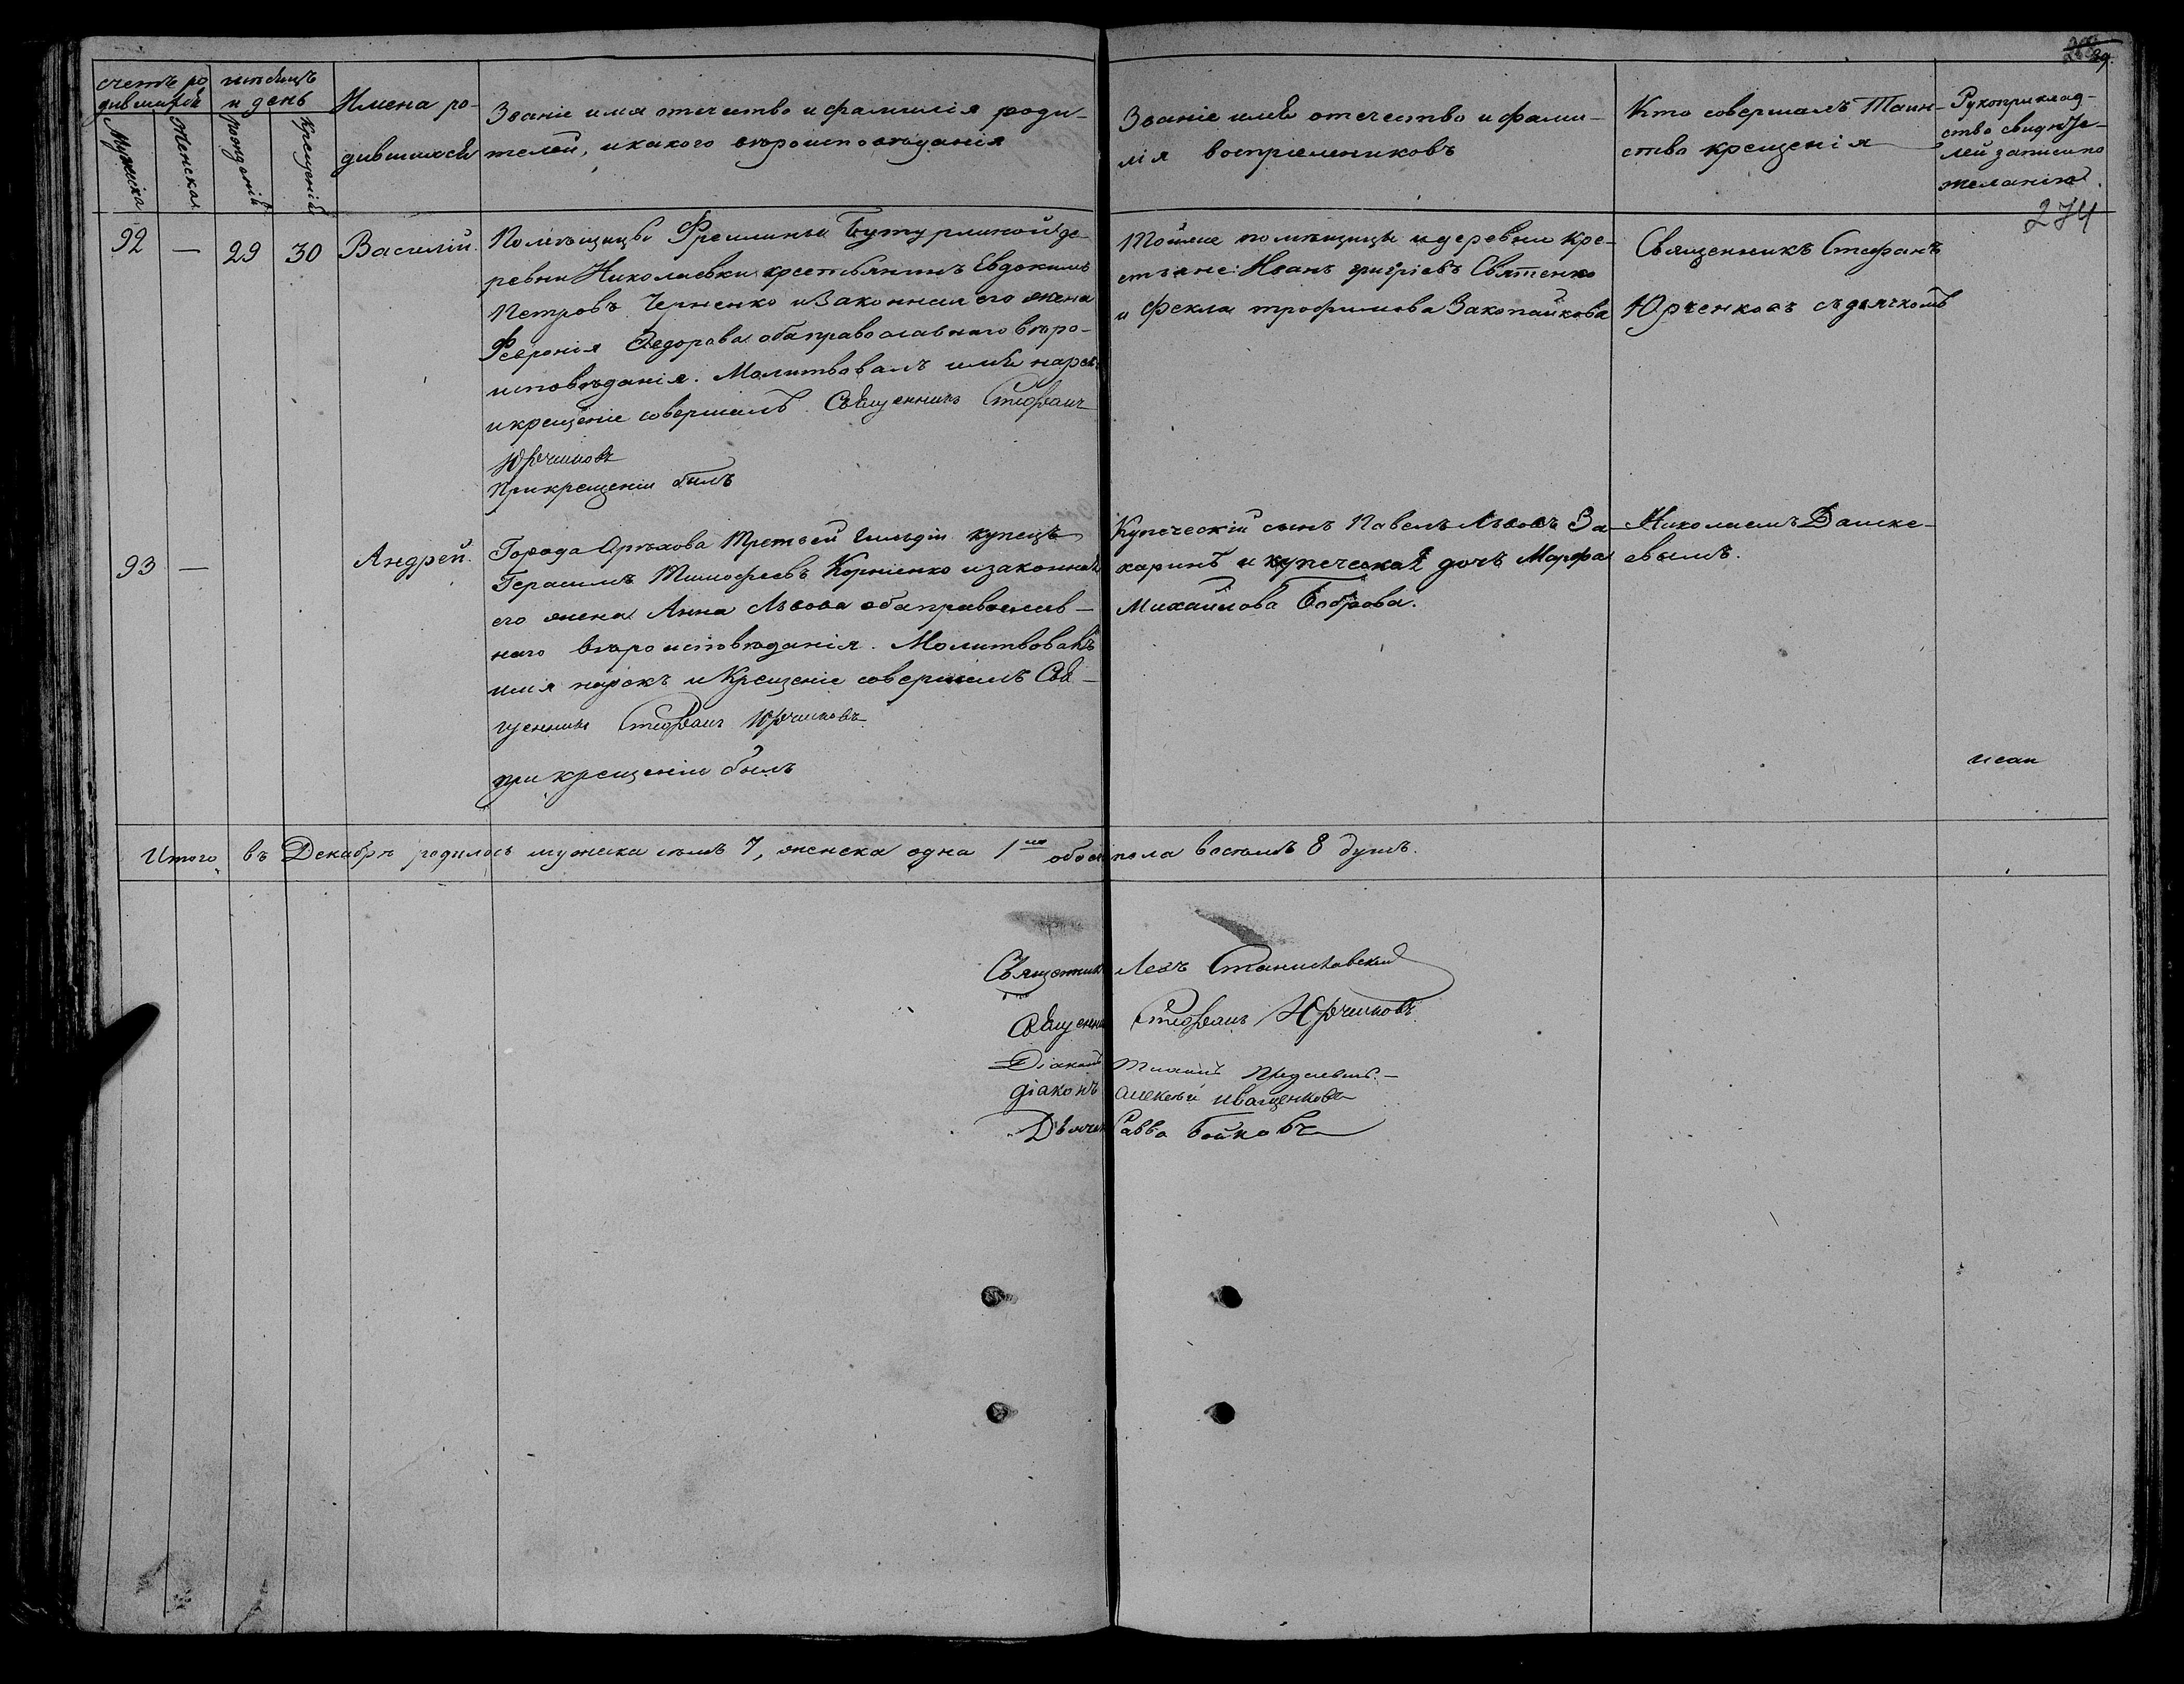 29.
274
счетъ ро
дившихся
мѣсяцъ
и день
Мужска
Женска
рожденія
крещенія
Имена ро-
дившихся
Званіе имя отечество и фамилія роди-
телей, и какого вѣроисповѣданія
Званіе имя отечество и фами-
лія воспріемниковъ
Кто совершалъ Таин-
ство крещенія
Рукоприклад-
ство свидѣте-
лей записи по
желанію.
92 — 29 30 Василій.
Помѣщицы Фрейлины Бутурлиной де-
ревни Николаевки крестьянинъ Евдокимъ
Петровъ Черненко и Законная его жена
Феѵронія Федорова оба православнаго вѣро-
исповѣданія. Молитвовалъ имя нарекъ
и крещеніе совершалъ Священникъ Стефанъ
Юрченковъ
При крещеніи былъ
Тойже помѣщицы и деревни Кре-
стьяне: Иванъ григоріевъ Святенко
и Фекла трофимова Закопайкова
Священникъ Стефанъ
Юрченковъ съ дьячкомъ
93 — Андрей.
Города Орѣхова Третьей Гильдіи купецъ
Герасимъ Тимофеевъ Корніенко и законная
его жена Анна Львова оба православ-
наго вѣроисповѣданія. Молитвовалъ
имя нарекъ и Крещеніе совершилъ Свя-
щенникъ Стефанъ Юрченковъ
при крещеніи былъ
Купеческій сынъ Павелъ Львовъ За-
харинъ и купеческая дочь Марфа
Михайлова Боброва.
Николаемъ Дашке-
евымъ.
Итого въ Декабрѣ родилось мужска семь 7, женска одна 1 обоего пола восемь 8 душъ.
Священникъ Левъ Станиславскій
Священникъ Стефанъ Юрченковъ
Діаконъ
діаконъ алексѣй иващенковъ
Дьячекъ Савва Бойковъ